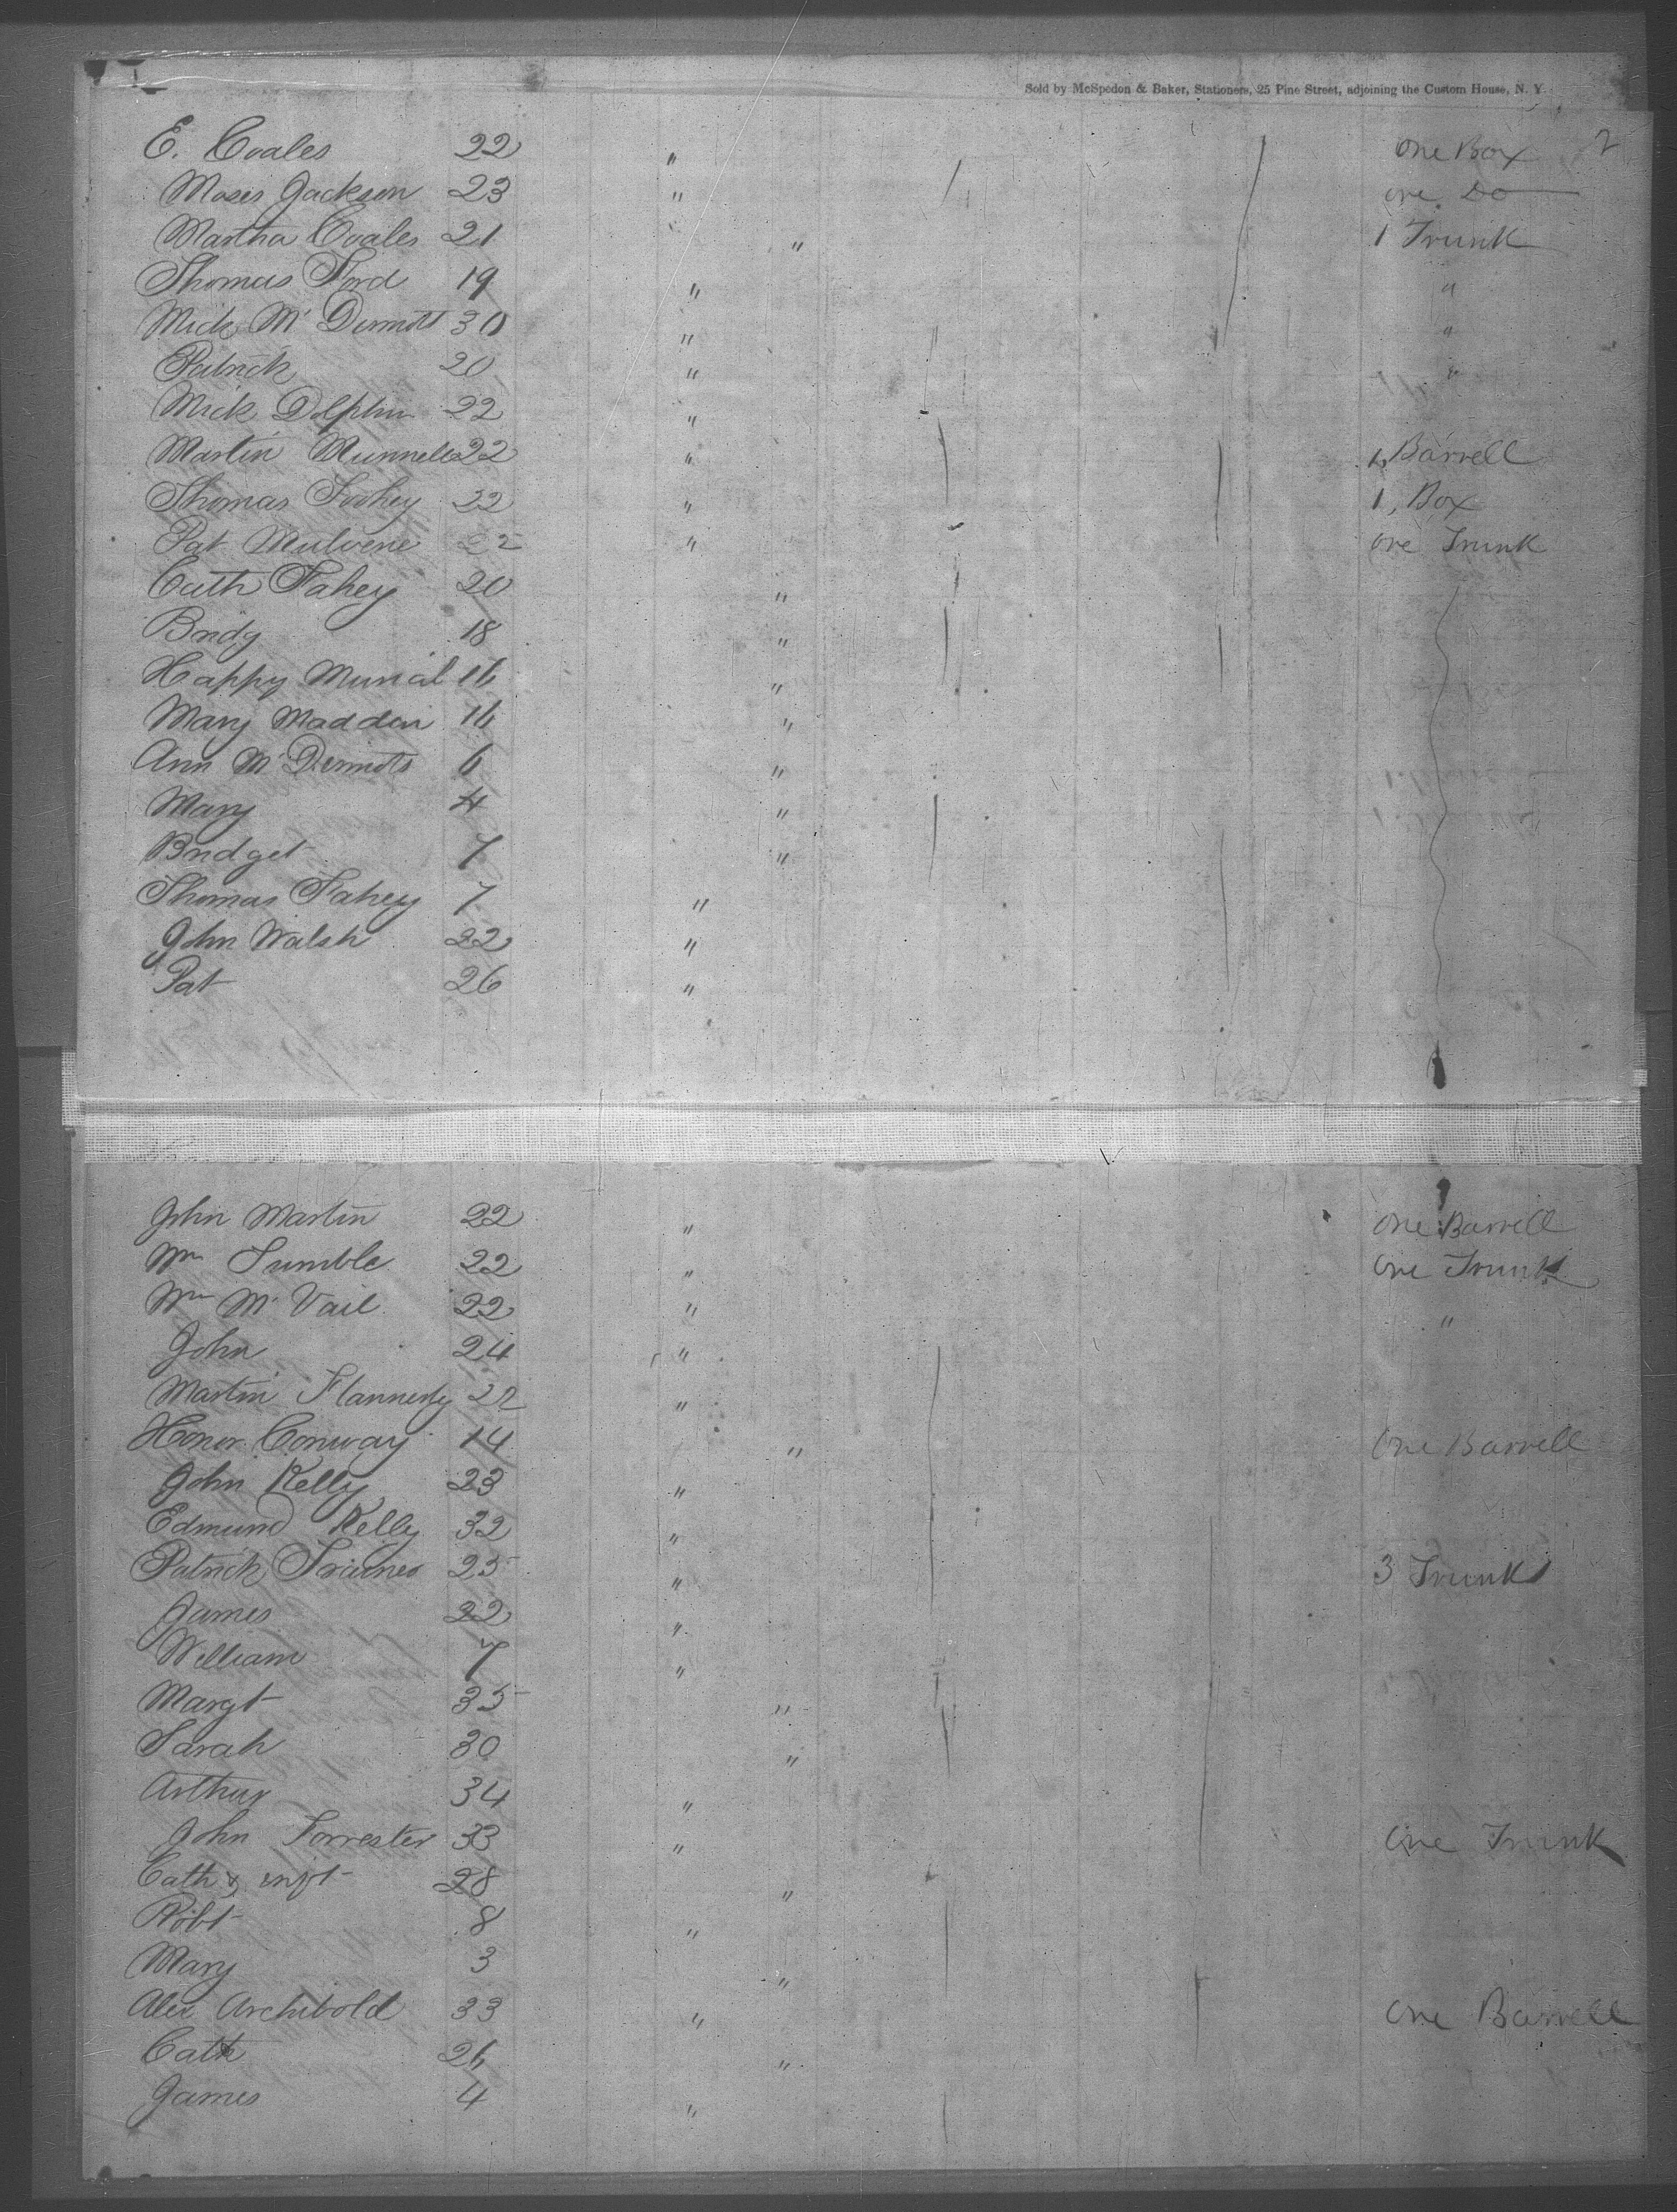 Sold by McSpedon & Baker, Stationers, 25 Pine Street, adjoining the Custom House, N. Y.
2
E. Coales 22 " One Box
Moses Jackson 23 " one Do
Martha Coales 21 " 1 Trunk
Thomas Ford 19 " "
Mick McDermott 30 " "
Patrick 20 " "
Mick Dolphin 22 "
Martin 22 " 1, Barrell
Thomas Foohey 22 " 1, Box
Pat 22 " one Trunk
Cath Fahey 20 "
Bridy 18 "
Happy 16 "
Mary Madden 16 "
Ann McDermott 6 "
Mary 4 "
Bridget 7 "
Thomas Fahey 7 "
John Walsh 22 "
Pat 26 "
John Martin 22 " one Barrell
Wm 22 " one Trunk
Wm McVail 22 " "
John 24 "
Martin Flannerly 22 "
Honor Conway 14 " One Barrell
John Kelly 23 "
Edmund Kelly 32 "
Patrick 25 " 3 Trunks
James 22 "
William 7 "
Margt 35 "
Sarah 30 "
Arthur 34 "
John Forrester 33 " One Trunk
Cath & inft 28 "
Robt 8 "
Mary 3 "
Alex Archibold 33 " One Barrell
Cath 26 "
James 4 "